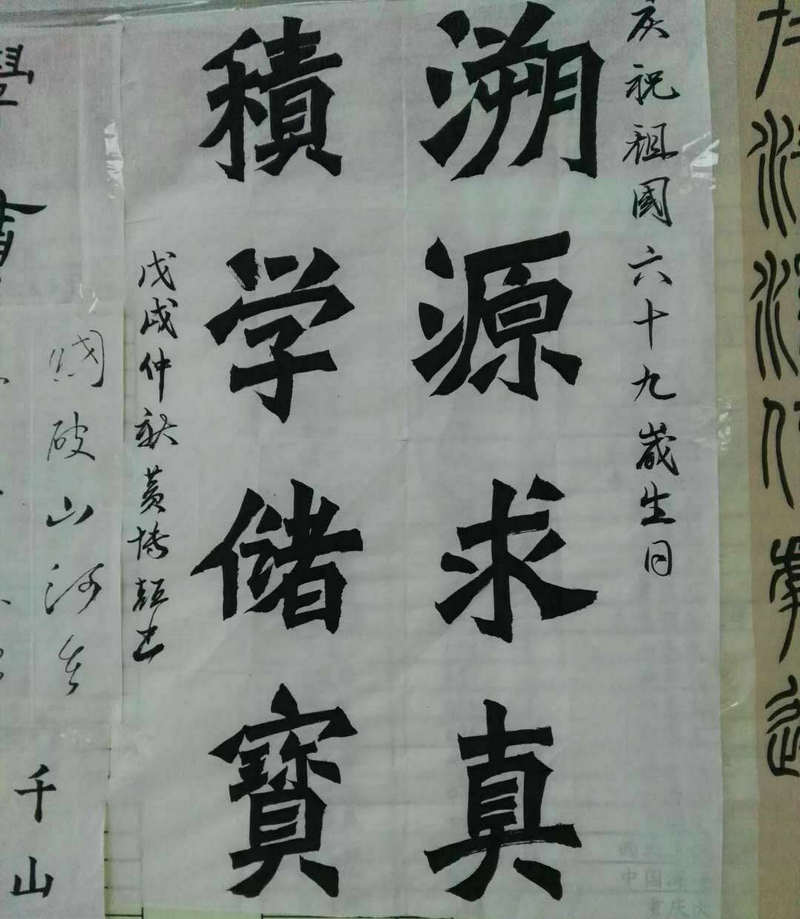 庆祝祖國六十九歲生日
溯源求真
積学儲寶
戊戌仲秋黄
國破山河在
千山
中国